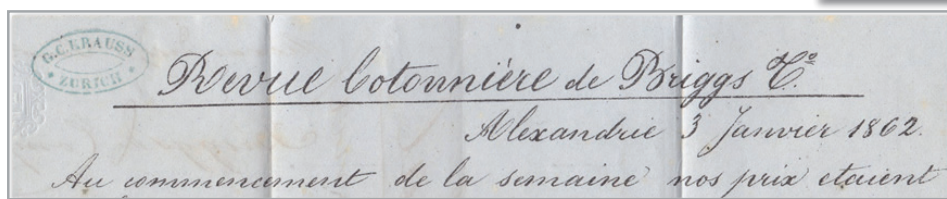 G.C. KRAUSS
* ZURICH *
Revue Cotonnière de Briggs Co.
Alexandrie 3 Janvier 1862.
Au commencement de la semaine nos prix etaient